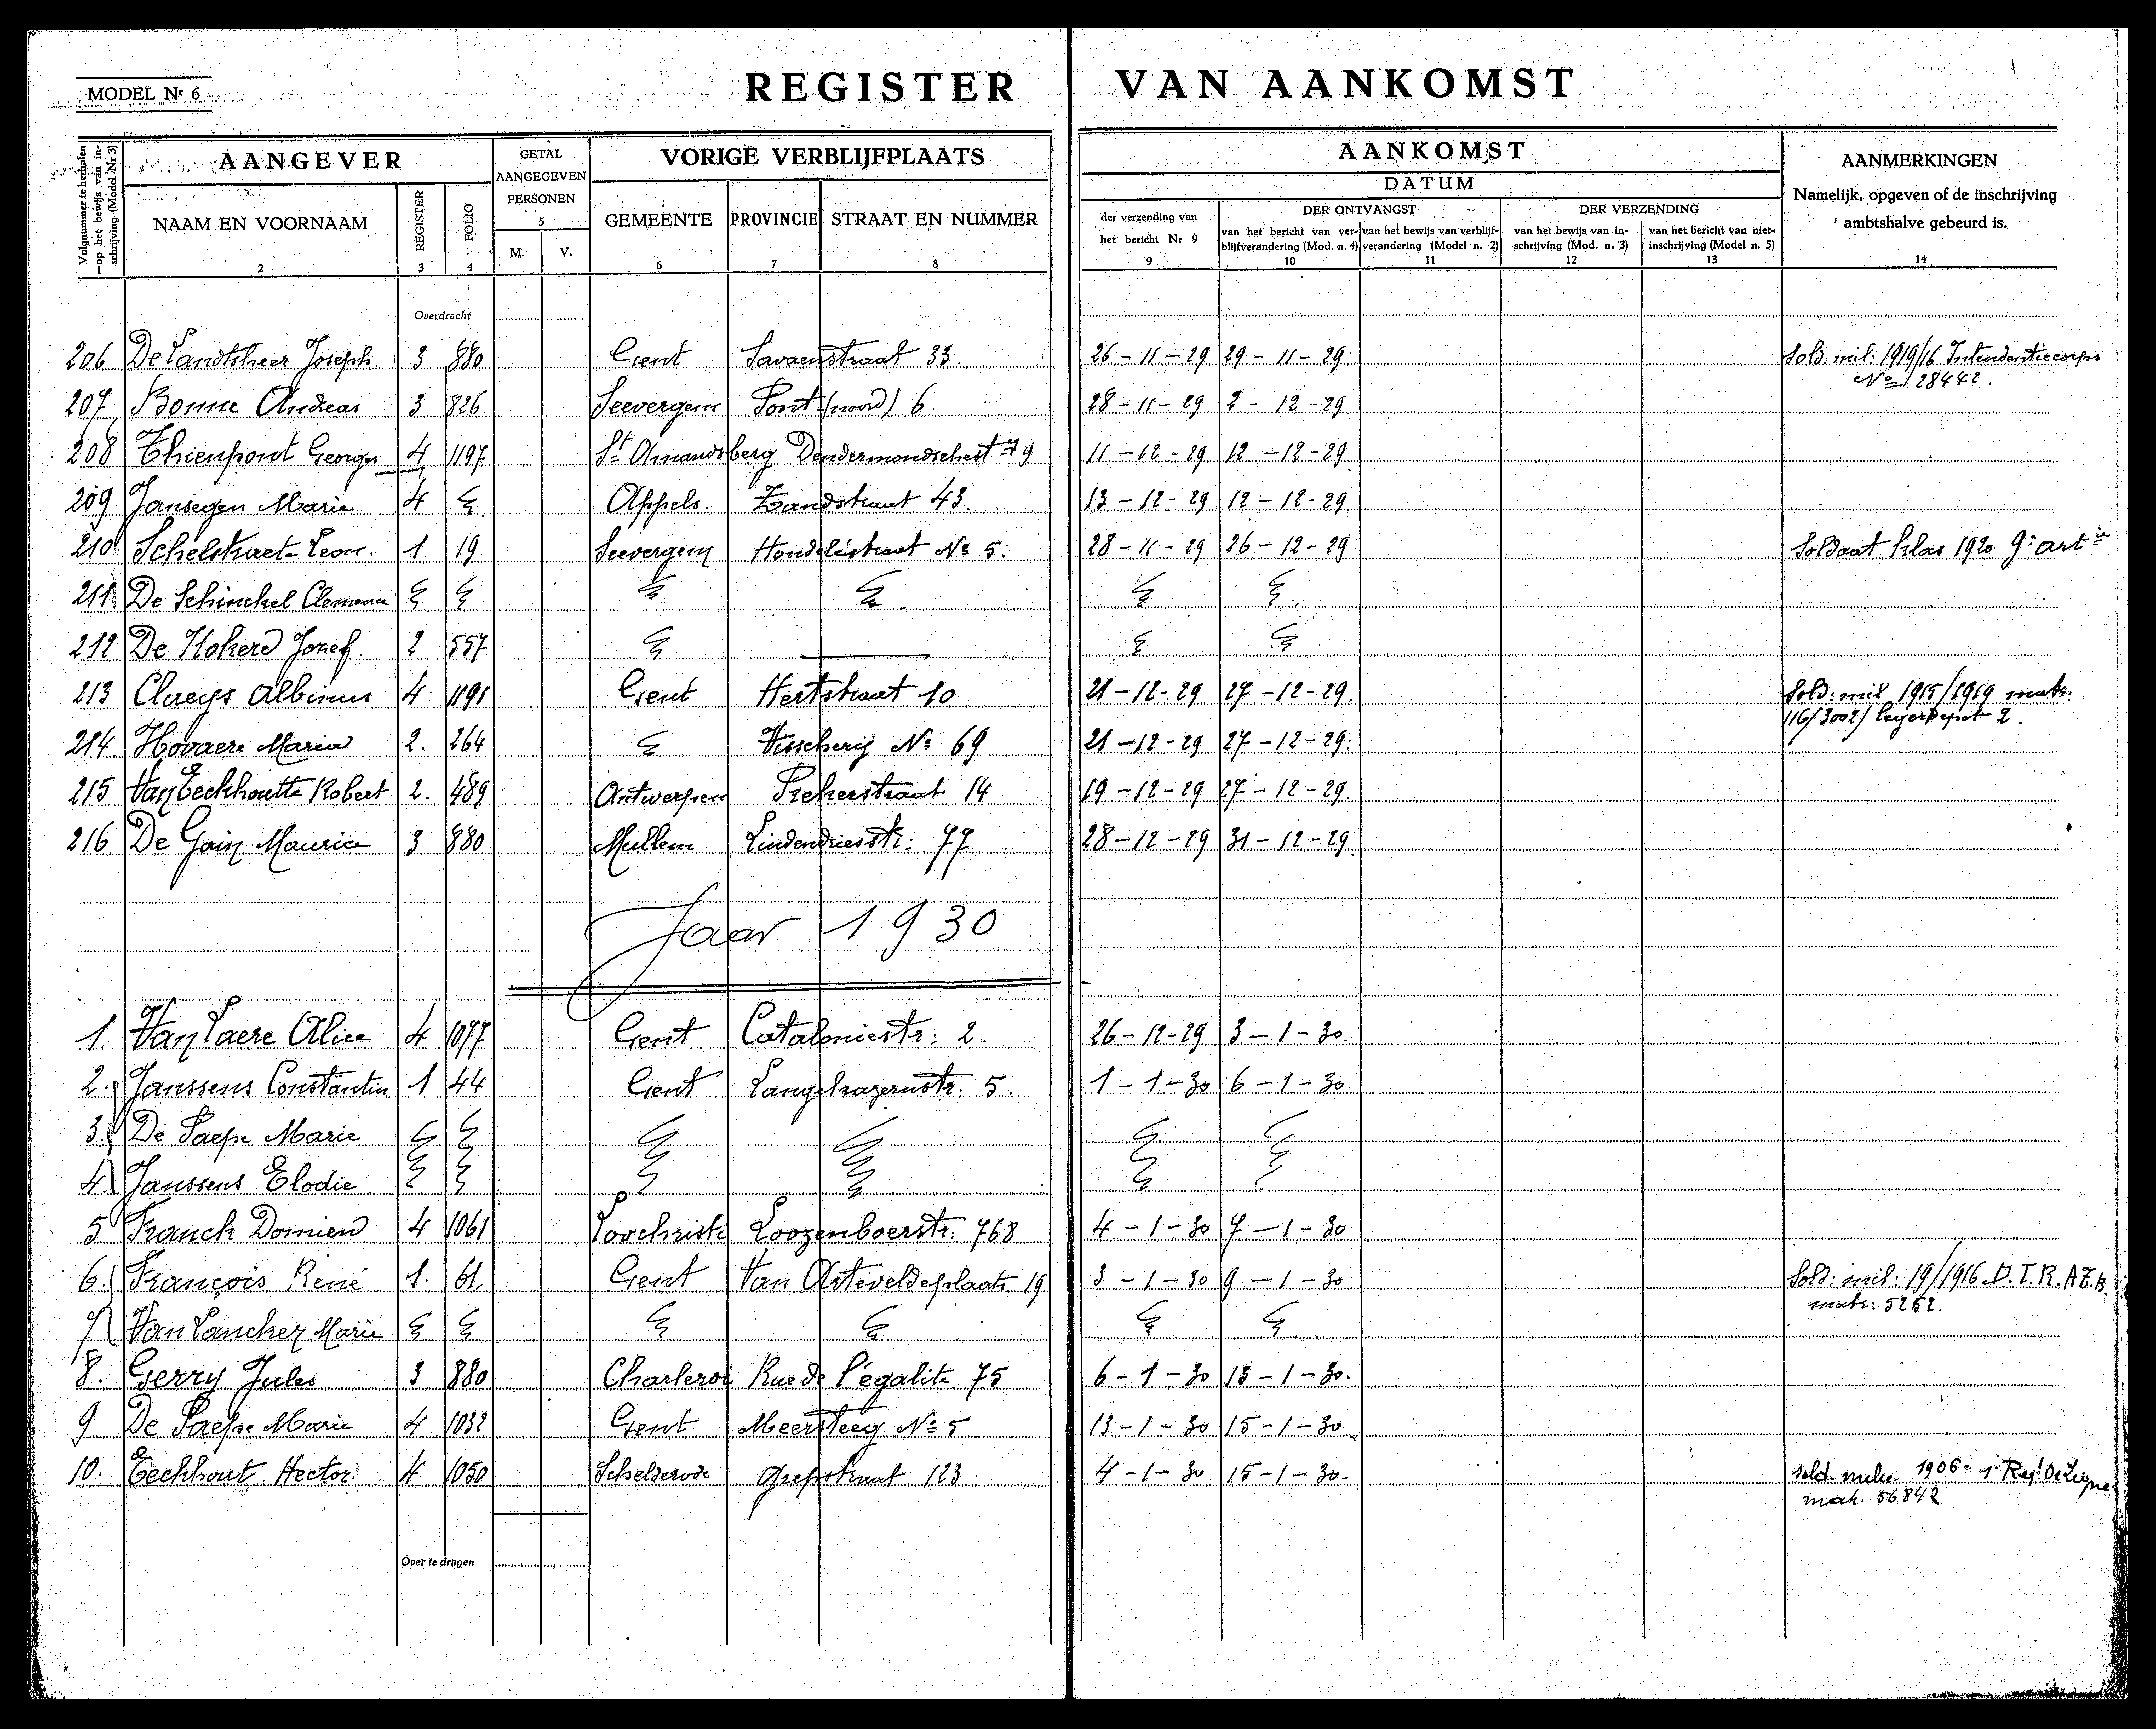 MODEL Nr 6
REGISTER VAN AANKOMST
Volgnummer te herhalen op het bewijs van inschrijving (Model Nr 3)
AANGEVER
NAAM EN VOORNAAM
2
REGISTER
3
FOLIO
4
GETAL AANGEGEVEN PERSONEN
5
M. V.
VORIGE VERBLIJFPLAATS
GEMEENTE
6
PROVINCIE
7
STRAAT EN NUMMER
8
AANKOMST
DATUM
der verzending van het bericht Nr 9
9
DER ONTVANGST
van het bericht van verblijfverandering (Mod. n. 4)
10
van het bewijs van verblijfverandering (Model n. 2)
11
DER VERZENDING
van het bewijs van inschrijving (Mod. n. 3)
12
van het bericht van niet-inschrijving (Model n. 5)
13
AANMERKINGEN
Namelijk, opgeven of de inschrijving
ambtshalve gebeurd is.
14
Overdracht
206 De Landtsheer Joseph. 3 880 Gent Savaenstraat 33. 26-11-29 29-11-29. Sold. mil. 1919/16 Intendantiecorps
No 28442.
207 Bonne Andreas 3 826 Seevergem Pont (noord) 6 28-11-29 2-12-29
208 Thienpont Georges 4 1197 St Amandsberg Dendermondschest 79 11-12-29 12-12-29
209 Jansegen Marie 4 Appels. Zandstraat 43. 13-12-29 12-12-29
210 Schelstraete Leon. 1 19 Seevergem Hondeléstraat No 5. 28-11-29 26-12-29 Soldaat klas 1920 9e artie
211 De Schinckel
212 De Kokere Jozef. 2 557
213 Claeys Albinus 4 1191 Gent Hertstraat 10 21-12-29 27-12-29. Sold: mil 1915/1919 matr:
116/3002/ legerdepot 2.
214. Hovaere Maria 2. 264 Visscherij No 69 21-12-29 27-12-29.
215 Van Eeckhoutte Robert 2. 489 Antwerpen 14 19-12-29 27-12-29.
216 De Gain Maurice 3 880 Mullem Lindendriesstr: 77 28-12-29 31-12-29
Jaar 1930
1. Van Laere Alice 4 1077 Gent Cataloniestr: 2. 26-12-29 3-1-30.
2. Janssens Constantin 1 44 Gent Langekazernstr. 5. 1-1-30 6-1-30
3. De Paepe Marie
4. Janssens Elodie
5 Franck Domien 4 1061 Loochristi Loozenboerstr: 768 4-1-30 7-1-30
6. François René 1. 61. Gent Van Arteveldeplaats 19 3-1-30 9-1-30 Sold: mil: 19/1916 D.T.R.A
matr: 5252.
7 Van Lancker Marie
8. Gerry Jules 3 880 Charleroi Rue de l'égalité 75 6-1-30 13-1-30.
9 De Paepe Marie 4 1032 Gent Meersteeg No 5 13-1-30 15-1-30
10. Eeckhout Hector 4 1050 Schelderode 123 4-1-30 15-1-30. 1906- 1e Regt De Ligne
matr. 56842
Over te dragen